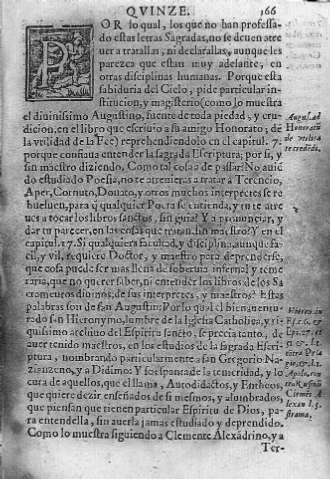 QVINZE.
166
POR lo qual, los que no han professa
do estas letras Sagradas, no se deuen atre
uer a tratallas, ni declarallas, aunque les
parezca que estan muy adelante, en
otras disciplinas humanas. Porque esta
sabiduria del Cielo, pide particular in
stitucion, y magisterio (como lo muestra
el diuinissimo Augustino, fuente de toda piedad, y eru
dicion, en el libro que escriuio a su amigo Honorato, de
la vtilidad de la Fee) reprehendiendolo en el capitul. 7.
porque confiaua entender la sagrada Escriptura, por si, y
sin maestro diziendo, Como tal cosa a de passar? No auien
do estudiado Poesia, no te atreuieras a tratar a Terencio,
Aper, Cornuto, Donato, y otros muchos interpretes se re
bueluen, para que qualquier Poeta se entienda, y tu te atre
ues a tocar los libros sanctos, sin guia? Y a pronunciar, y
dar tu parecer, en las cosas que tratan, sin maestro? Y en el
capitul. 17. Si qualquiera facultad, y disciplina, aunque fa
cil, y vil, requiere Doctor, y maestro para deprenderse,
que cosa puede ser mas llena de soberuia infernal, y teme
raria, que no querer saber, ni entender los libros de los Sa
cramentos diuinos, de sus interpretes, y maestros? Estas
palabras son de san Augustin: Por lo qual el bienauen
turado san Hieronymo, lumbre de la Iglesia Catholica, y ri
quissimo archiuo del Espiritu sancto, se precia tanto, de
auer tenido maestros, en los estudios de la sagrada Escri
ptura, nombrando particularmente a san Gregorio Na
zianzeno, y a Didimo: Y se espanta de la temeridad, y lo
cura de aquellos, que el llama, Autodidactos, y Entheos,
que quiere dezir enseñados de si mesmos, y alumbrados,
que piensan que tienen particular Espiritu de Dios, pa
ra entendella, sin auerla jamas estudiado y deprendido.
Como lo muestra siguiendo a Clemente Alexádrino, y a
Ter-
August. ad
Honoratū
de vtilita
te credēdi.